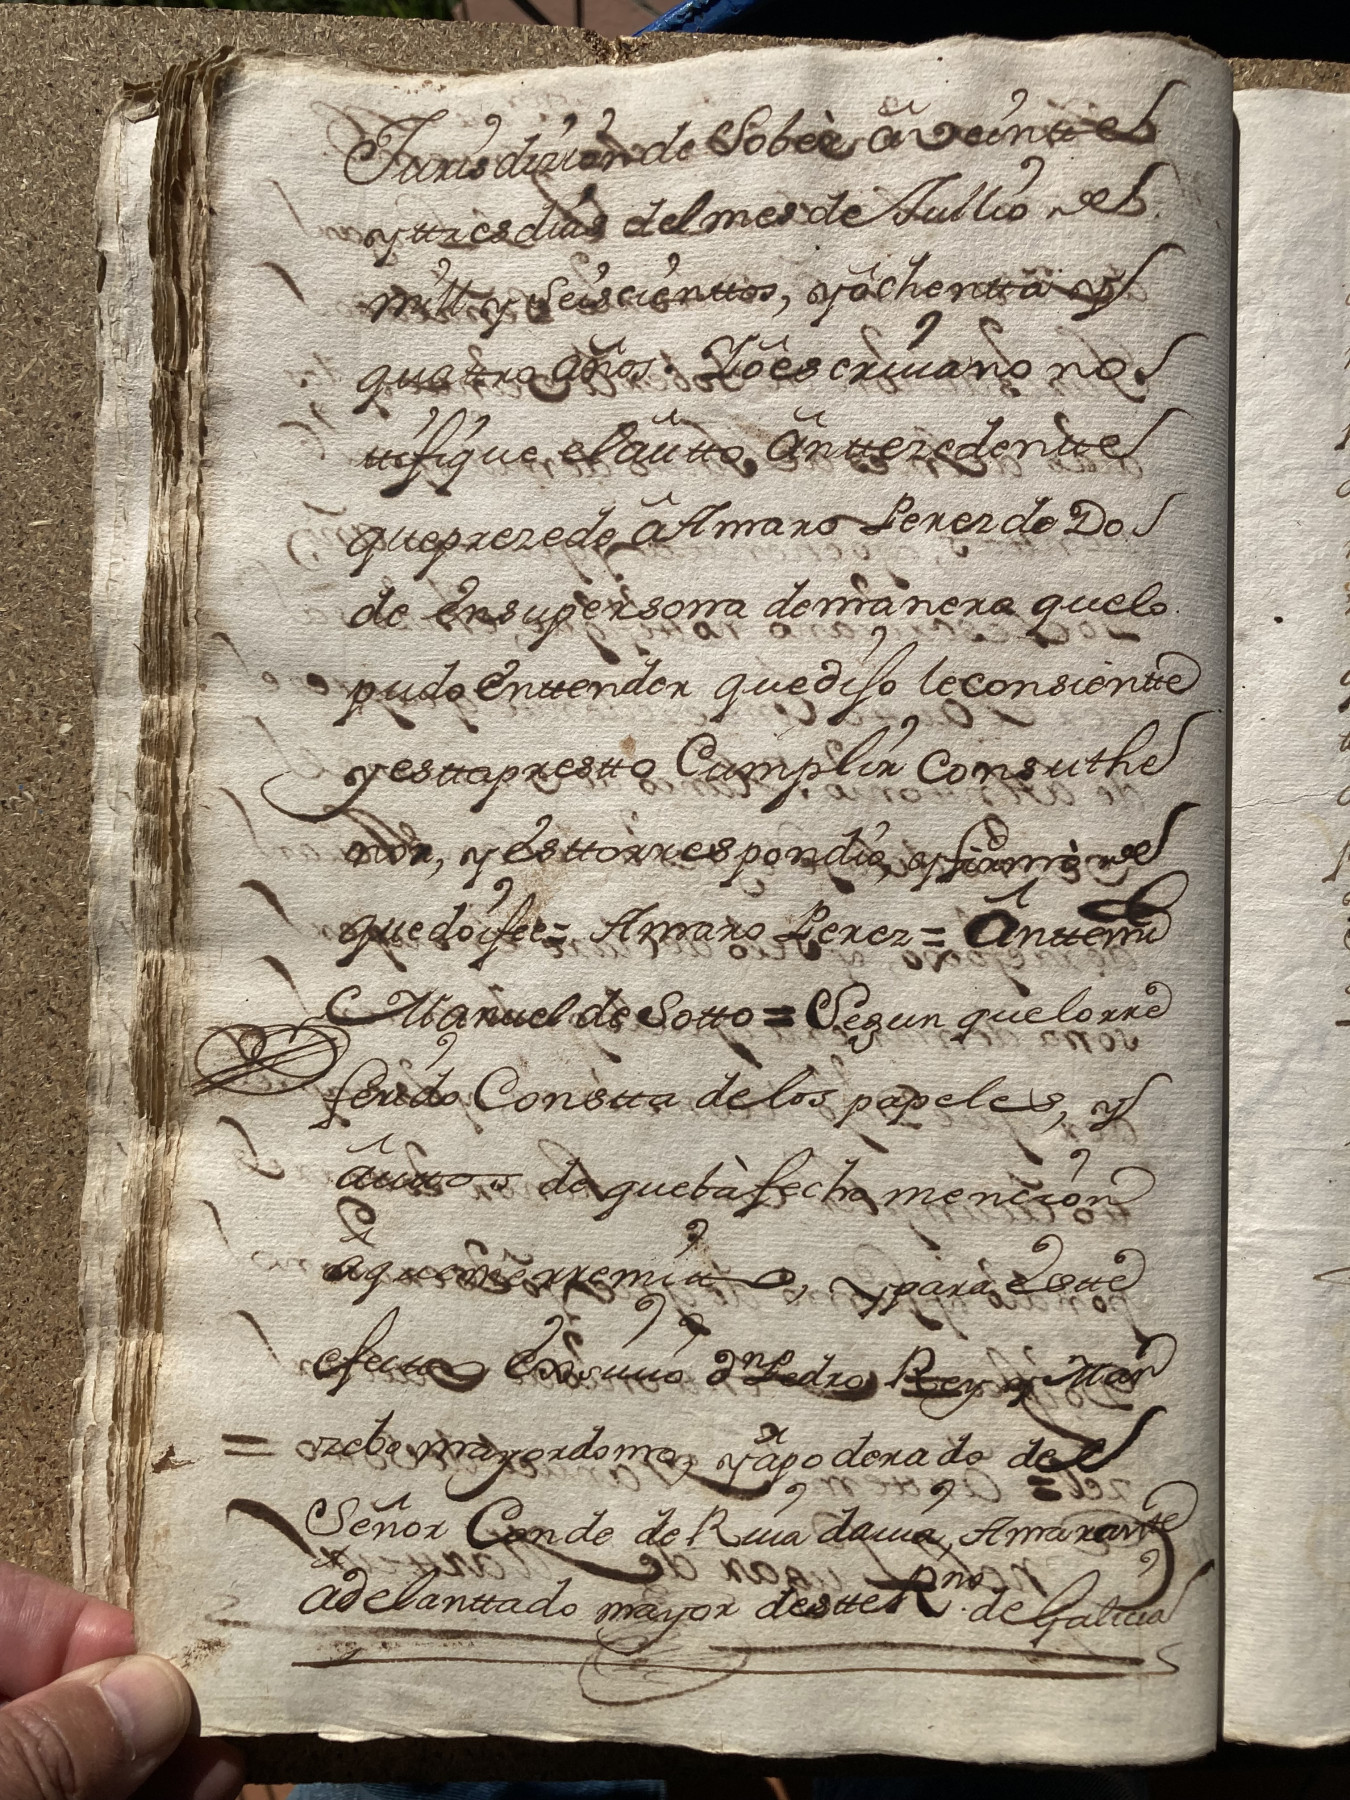 Jurisdizion de Sober â veintte
y ttres dias del mes de Jullio de
mill y seiscienttos, y ôchentta y
quatro años. Yô escriuano no
ttifique el âutto ânttezedentte
que prezede â Amaro Perez do Do
de en su persona de manera que lo
pudo enttender que dijo le consientte
y estta prestto Cumplir Con su the
nor, y estto rrespondio, y firmò de
que doi fee = Amaro Perez = Ânttemi
Manuel de Sotto = Segun que lo rre
ferido Constta de los papeles, y
âuttos de que bà fecha mencion
â que me rremitto, y para estte
efectto exsiuio Dn Pedro Rey y Man
= zebo mayordomo, y apoderado del
Señor Conde de Riuadauia, Amarantte
adelanttado mayor destte Rno de Galicia